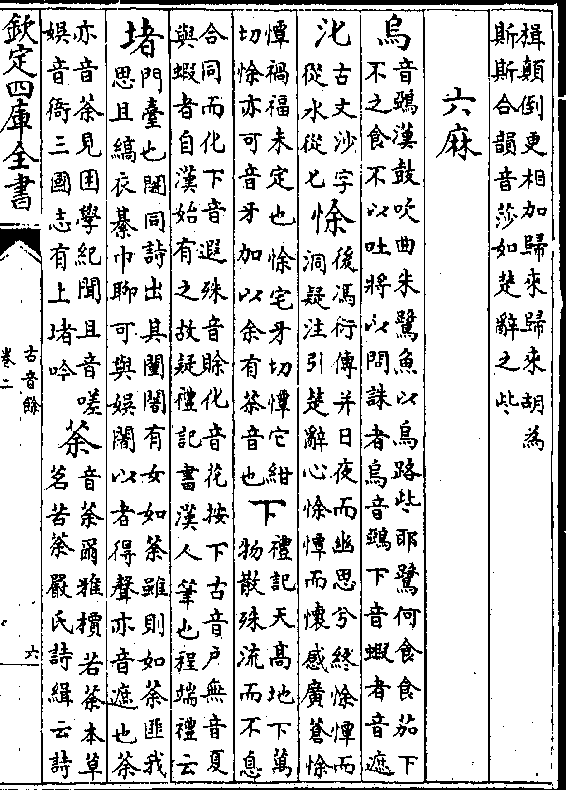 揖顛倒更相加歸來歸來胡為
斯斯合韻音莎如楚辭之些
六麻
烏
音鵶漢鼓吹曲朱鷺魚以烏路些耶鷺何食食茄下
不之食不以吐將以問誅者烏音鵶下音蝦者音遮
古文沙字
從水從匕
悇
後馮衍傳并日夜而幽思兮終悇憚而
洞疑注引楚辭心悇憚而懷感廣蒼悇
憚禍福未定也悇宅牙切憚它紺
切悇亦可音牙加以余有荼音也
下
禮記天高地下萬
物散殊流而不息
合同而化下音遐殊音賒化音花按下古音戶無音夏
與蝦者自漢始有之故疑禮記書漢人筆也程端禮云
堵
門臺也闍同詩出其闉闍有女如荼雖則如荼匪我
思且縞衣綦巾聊可與娛闍以者得聲亦音遮也荼
亦音荼見困學紀聞且音嗟
娛音衙三國志有上堵吟
荼
音荼爾雅檟若荼本草
茗苦荼嚴氏詩緝云詩
欽定四庫全書
古音餘
卷二
六